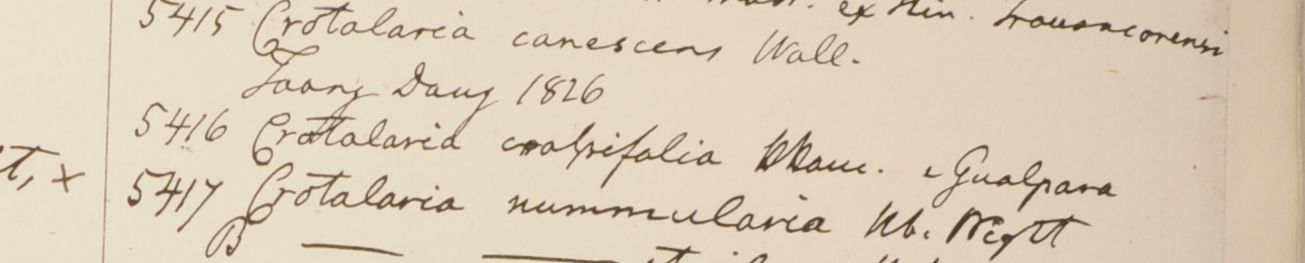 ex Hin. Travancorensi
5415 Crotalaria canescens Wall.
Taong Dang 1826
5416 Crotalaria Ham. e Gualpara
t, x
5417 Crotalaria nummularia Hb. Wight
B